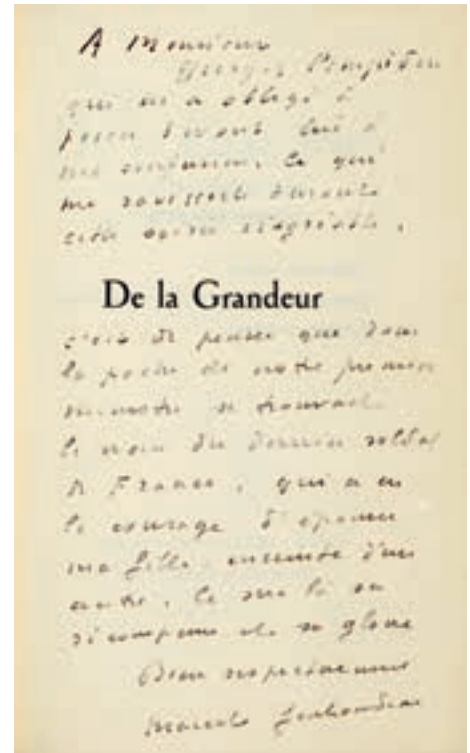 A Monsieur
Georges Pompidou
qui m'a obligé à
devant lui
ce qui
me durant
cette
De la Grandeur
c'est de penser que dans
la poche de notre premier
ministre se trouvait
le nom du dernier soldat
de France, qui a eu
le courage d'épouser
ma fille, enceinte d'un
autre. Ce sera là sa
récompense et sa gloire
Bien respectueusement
Marcel Jouhandeau